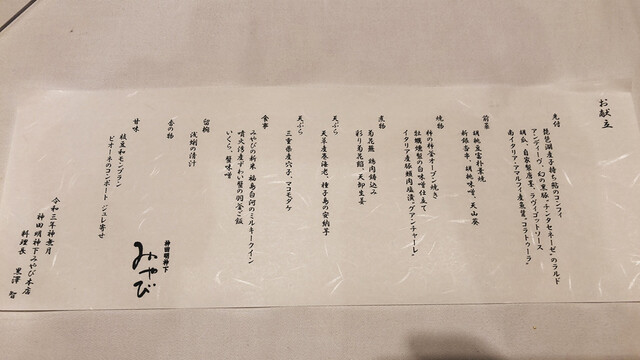 お献立
先付
琵琶湖産子持ち鮎のコンフィ
アンディーヴ、幻の黒豚“チンタセネーゼ”のラルド
胡瓜、自家製唐墨、ラヴィゴットソース
南イタリア・アマルフィ産魚醤“コラトゥーラ”
前菜
胡桃豆富朴葉焼
新銀杏串、胡桃味噌、天山葵
焼物
柿の杮釜オーブン焼き
牡蠣燻製の白味噌仕立て
イタリア産豚頬肉塩漬“グアンチャーレ”
煮物
菊花蕪 鶏肉鋳込み
彩り菊花餡、天卸生姜
天ぷら
天草産巻海老、種子島の安納芋
天ぷら
三重県産穴子、マコモダケ
食事
みやびの新米 福島白河のミルキークイーン
噴火湾産ずわい蟹の羽釜ご飯
いくら、蟹味噌
留椀
浅蜊の清汁
香の物
甘味
枝豆和モンブラン
ピオーネのコンポート ジュレ寄せ
神田明神下
みやび
令和三年神無月
神田明神下みやび本店
料理長 黒澤 智